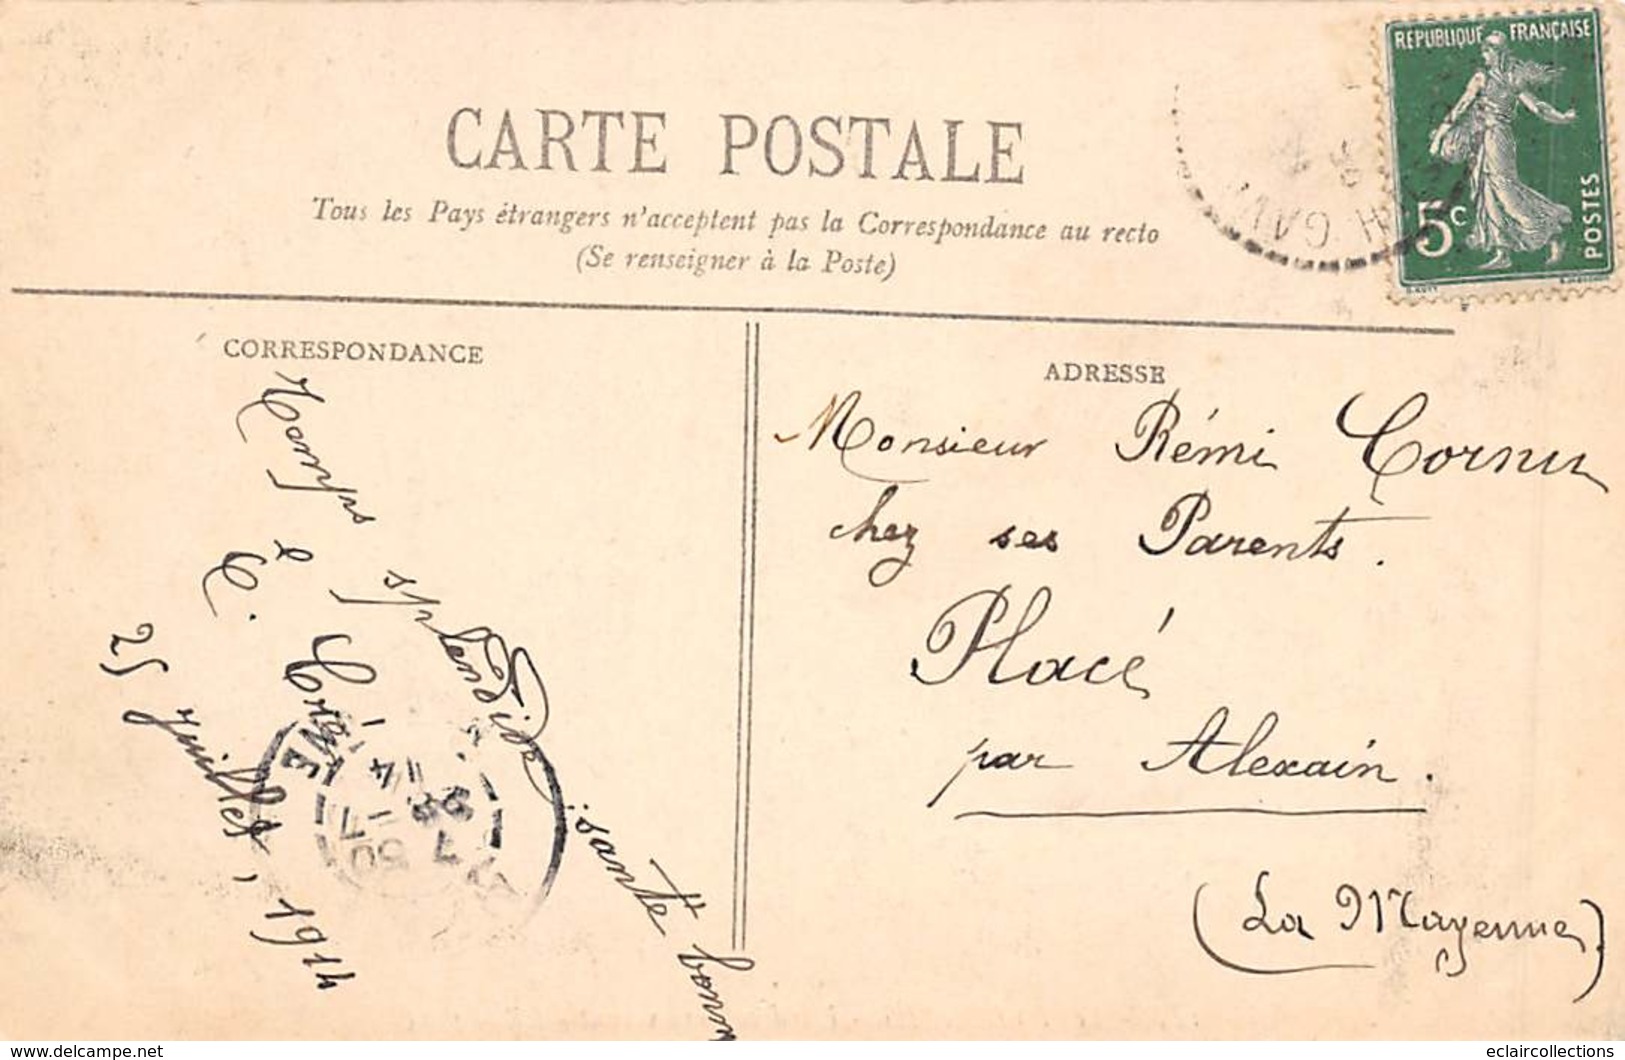 REPUBLIQUE FRANÇAISE
5c
POSTES
CARTE POSTALE
Tous les Pays étrangers n'acceptent pas la Correspondance au recto
(Se renseigner à la Poste)
CORRESPONDANCE
Temps splendide. santé bonn
25 Juillet, 1914
7 30
28 - 7
14
ADRESSE
Monsieur Rémi Cornu
chez ses Parents.
Placé
par Alexain.
(La Mayenne)
eclaircollections
www.delcampe.net